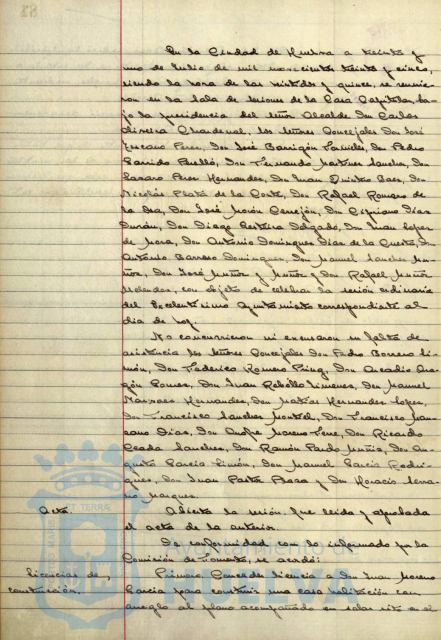 En la Ciudad de Huelva a treinta y
uno de Julio de mil novecientos treinta y cinco,
siendo la hora de las veintidos y quince, se reunie-
ron en la Sala de sesiones de la Casa Capitular, ba-
jo la presidencia del señor Alcalde Don Carlos
Oliveira Chardenal, los señores Concejales Don José
Don José Barrigón Don Pedro
Garrido Perelló, Don Fernando Martinez Sanchez, Don
Lazaro Perez Hernandez, Don Juan Quintero Baez, Don
Nicolás Plata de la Corte, Don Rafael Romero de
la Don José Morón Cerrejón, Don Cipriano Diaz
Durán, Don Diego Delgado, Don Juan Lopez
de Mora, Don Antonio Dominguez Diaz de la Cuesta, Don
Antonio Barroso Dominguez, Don Manuel Sanchez Mu-
ñoz, Don José Muñoz y Muñoz y Don Rafael Muñoz
con objeto de celebrar la sesión ordinaria
del Excelentisimo Ayuntamiento correspondiente al
dia de hoy.
No concurrieron ni excusaron su falta de
asistencia los señores Concejales Don Pedro Borrero Li-
món, Don Federico Romero Don Arcadio Ara-
gón Gomez, Don Juan Rebollo Jimenez, Don Manuel
Narvaez Hernandez, Don Matías Hernandez Lopez,
Don Francisco Sanchez Montiel, Don Francisco Man-
zano Diaz, Don Moreno Don Ricardo
Sanchez, Don Ramón Pardo Don Au-
gusto Garcia Limón, Don Manuel Garcia Rodri-
guez, Don Juan Pastor Baeza y Don Horacio Serra-
no Marquez.
Acta. Abierta la sesión, fue leida y aprobada
el acta de la anterior.
De conformidad con lo informado por la
Comisión de Fomento, se acordó:
Licencias de
construcción.
Primero Conceder licencia a Don Juan Moreno
Garcia para construir una casa habitación con
arreglo al plano acompañado en solar sito en el